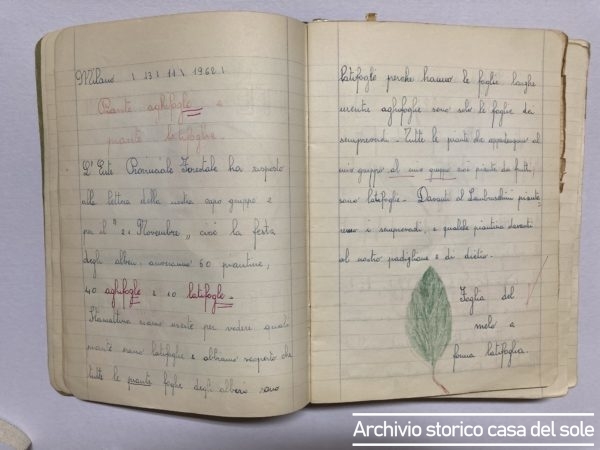 Milano \ 13 \ 11 \ 1962 \
Piante aghifoglie e
piante latifoglie.
L'Ente Provinciale Forestale ha risposto
alla lettera della nostra capo gruppo e
per il "21 Novembre" cioè la festa
degli alberi, avremo 60 piantine,
40 aghifoglie e 20 latifoglie.
Stamattina siamo usciti per vedere quali
piante sono latifoglie e abbiamo scoperto che
tutte le piante foglie degli alberi sono
latifoglie perche hanno le foglie larghe
mentre aghifoglie sono solo le foglie dei
sempreverdi. Tutte le piante che appartengono al
mio gruppo al mio gruppo cioè piante da frutti,
sono latifoglie. Davanti al Lambruschini piante
remo i sempreverdi, e qualche piantina davanti
al nostro padiglione e di dietro.
Foglia del
melo a
forma latifoglia.
Archivio storico casa del sole